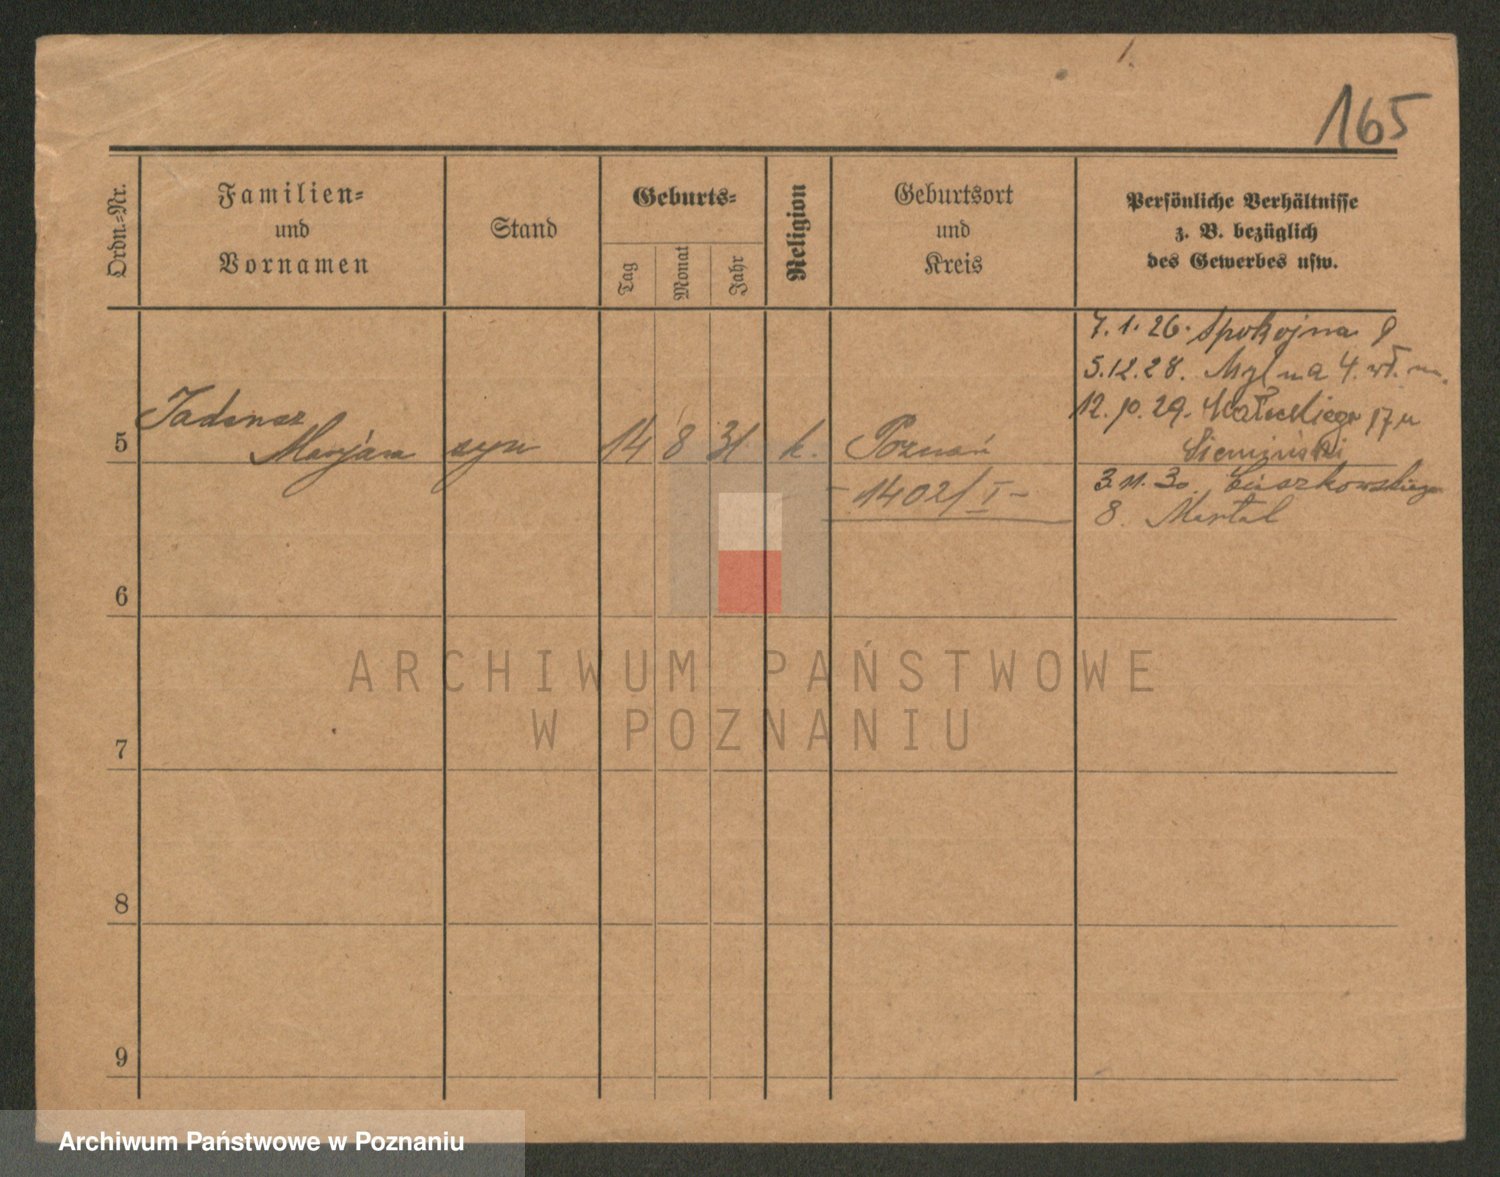 165
Ordn.-Nr.
Familien-
und
Vornamen
Stand
Geburts-
Tag
Monat
Jahr
Religion
Geburtsort
und
Kreis
Persönliche Verhältnisse
z. B. bezüglich
des Gewerbes usw.
7.1.26. Spokojna 9
5.12.28. Mylna 4. wł. m.
12.10.29. Małeckiego 17 u
Siemiński
5 Tadeusz
Marjan syn 14 8 31 k. Poznań
- 1402/I -
3.11.30. Cieszkowskiego
8. Martal
6
7
8
9
ARCHIWUM PAŃSTWOWE
W POZNANIU
Archiwum Państwowe w Poznaniu